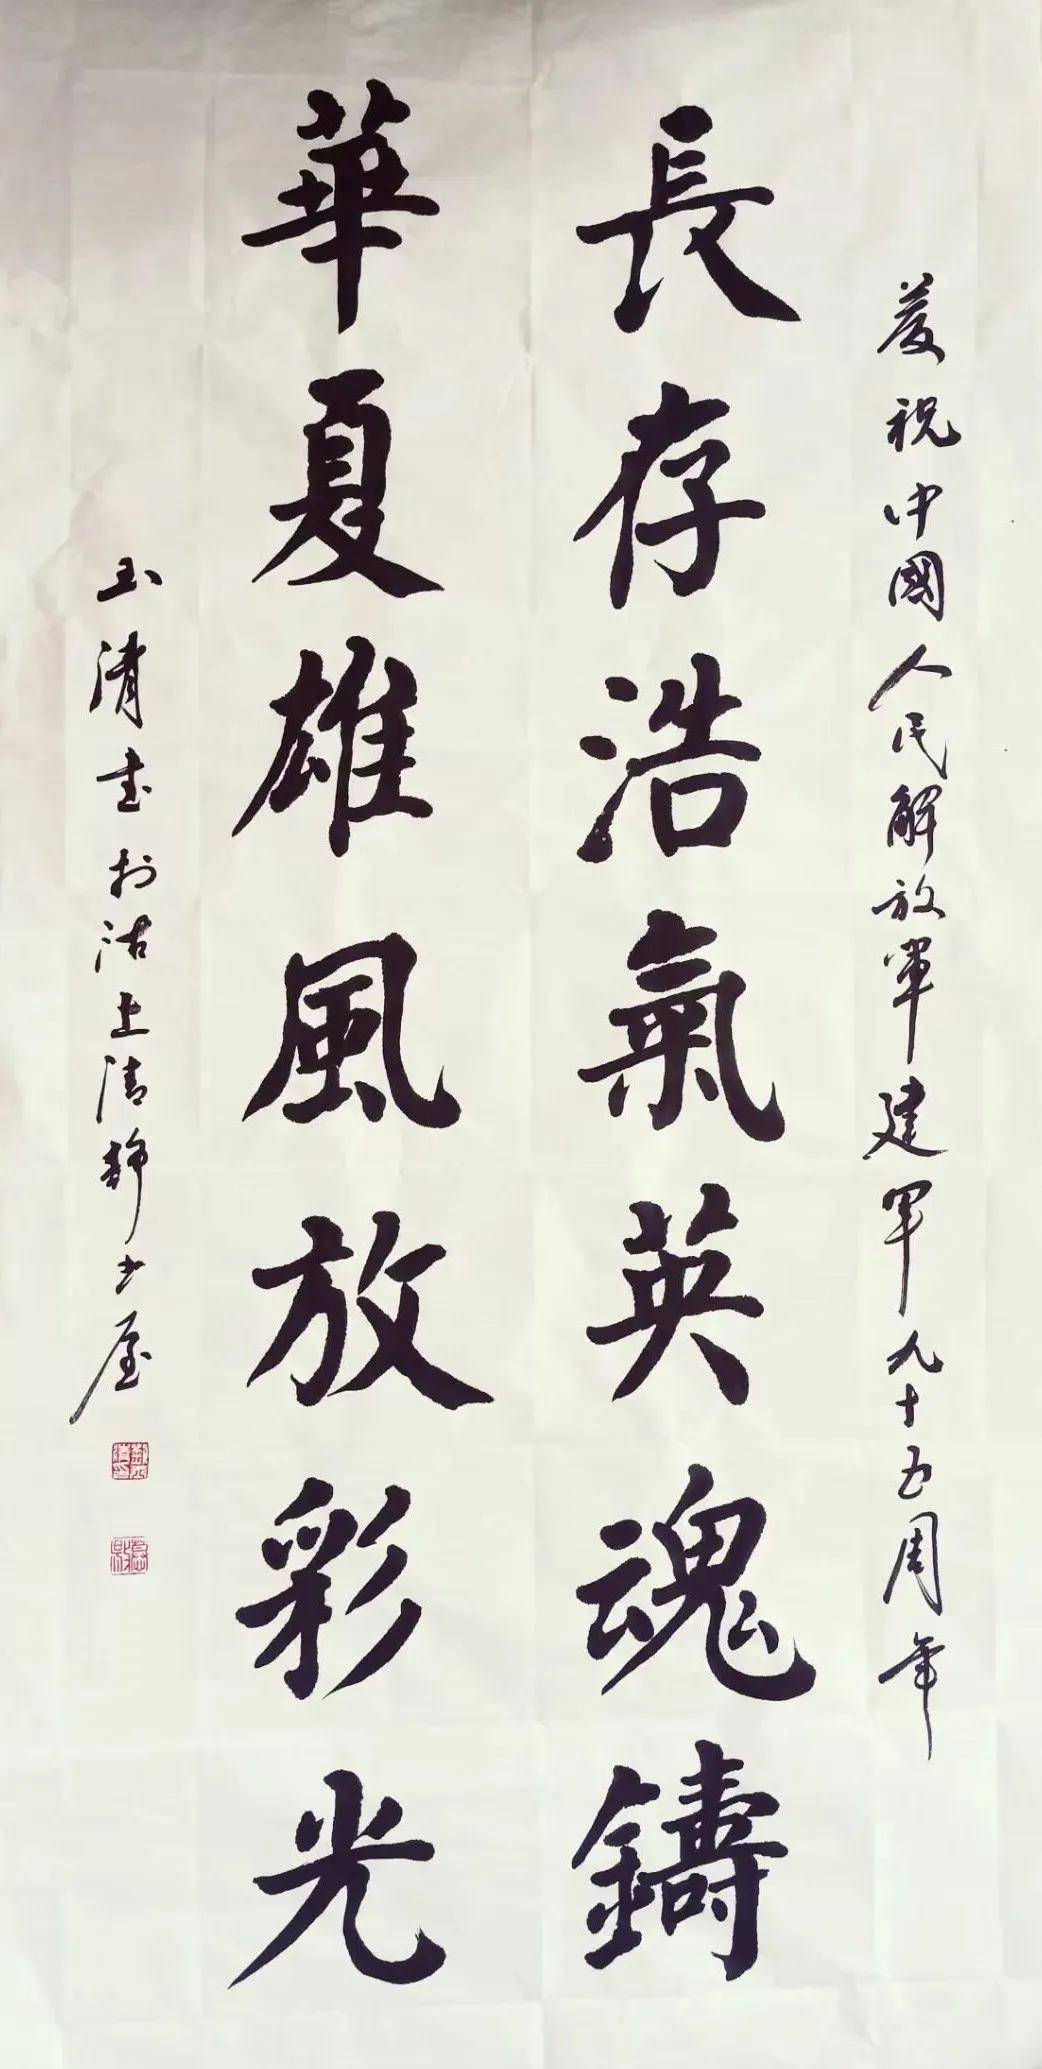 慶祝中國人民解放軍建軍九十五周年
長存浩氣英魂鑄
華夏雄風放彩光
玉清書於沽上清靜書屋